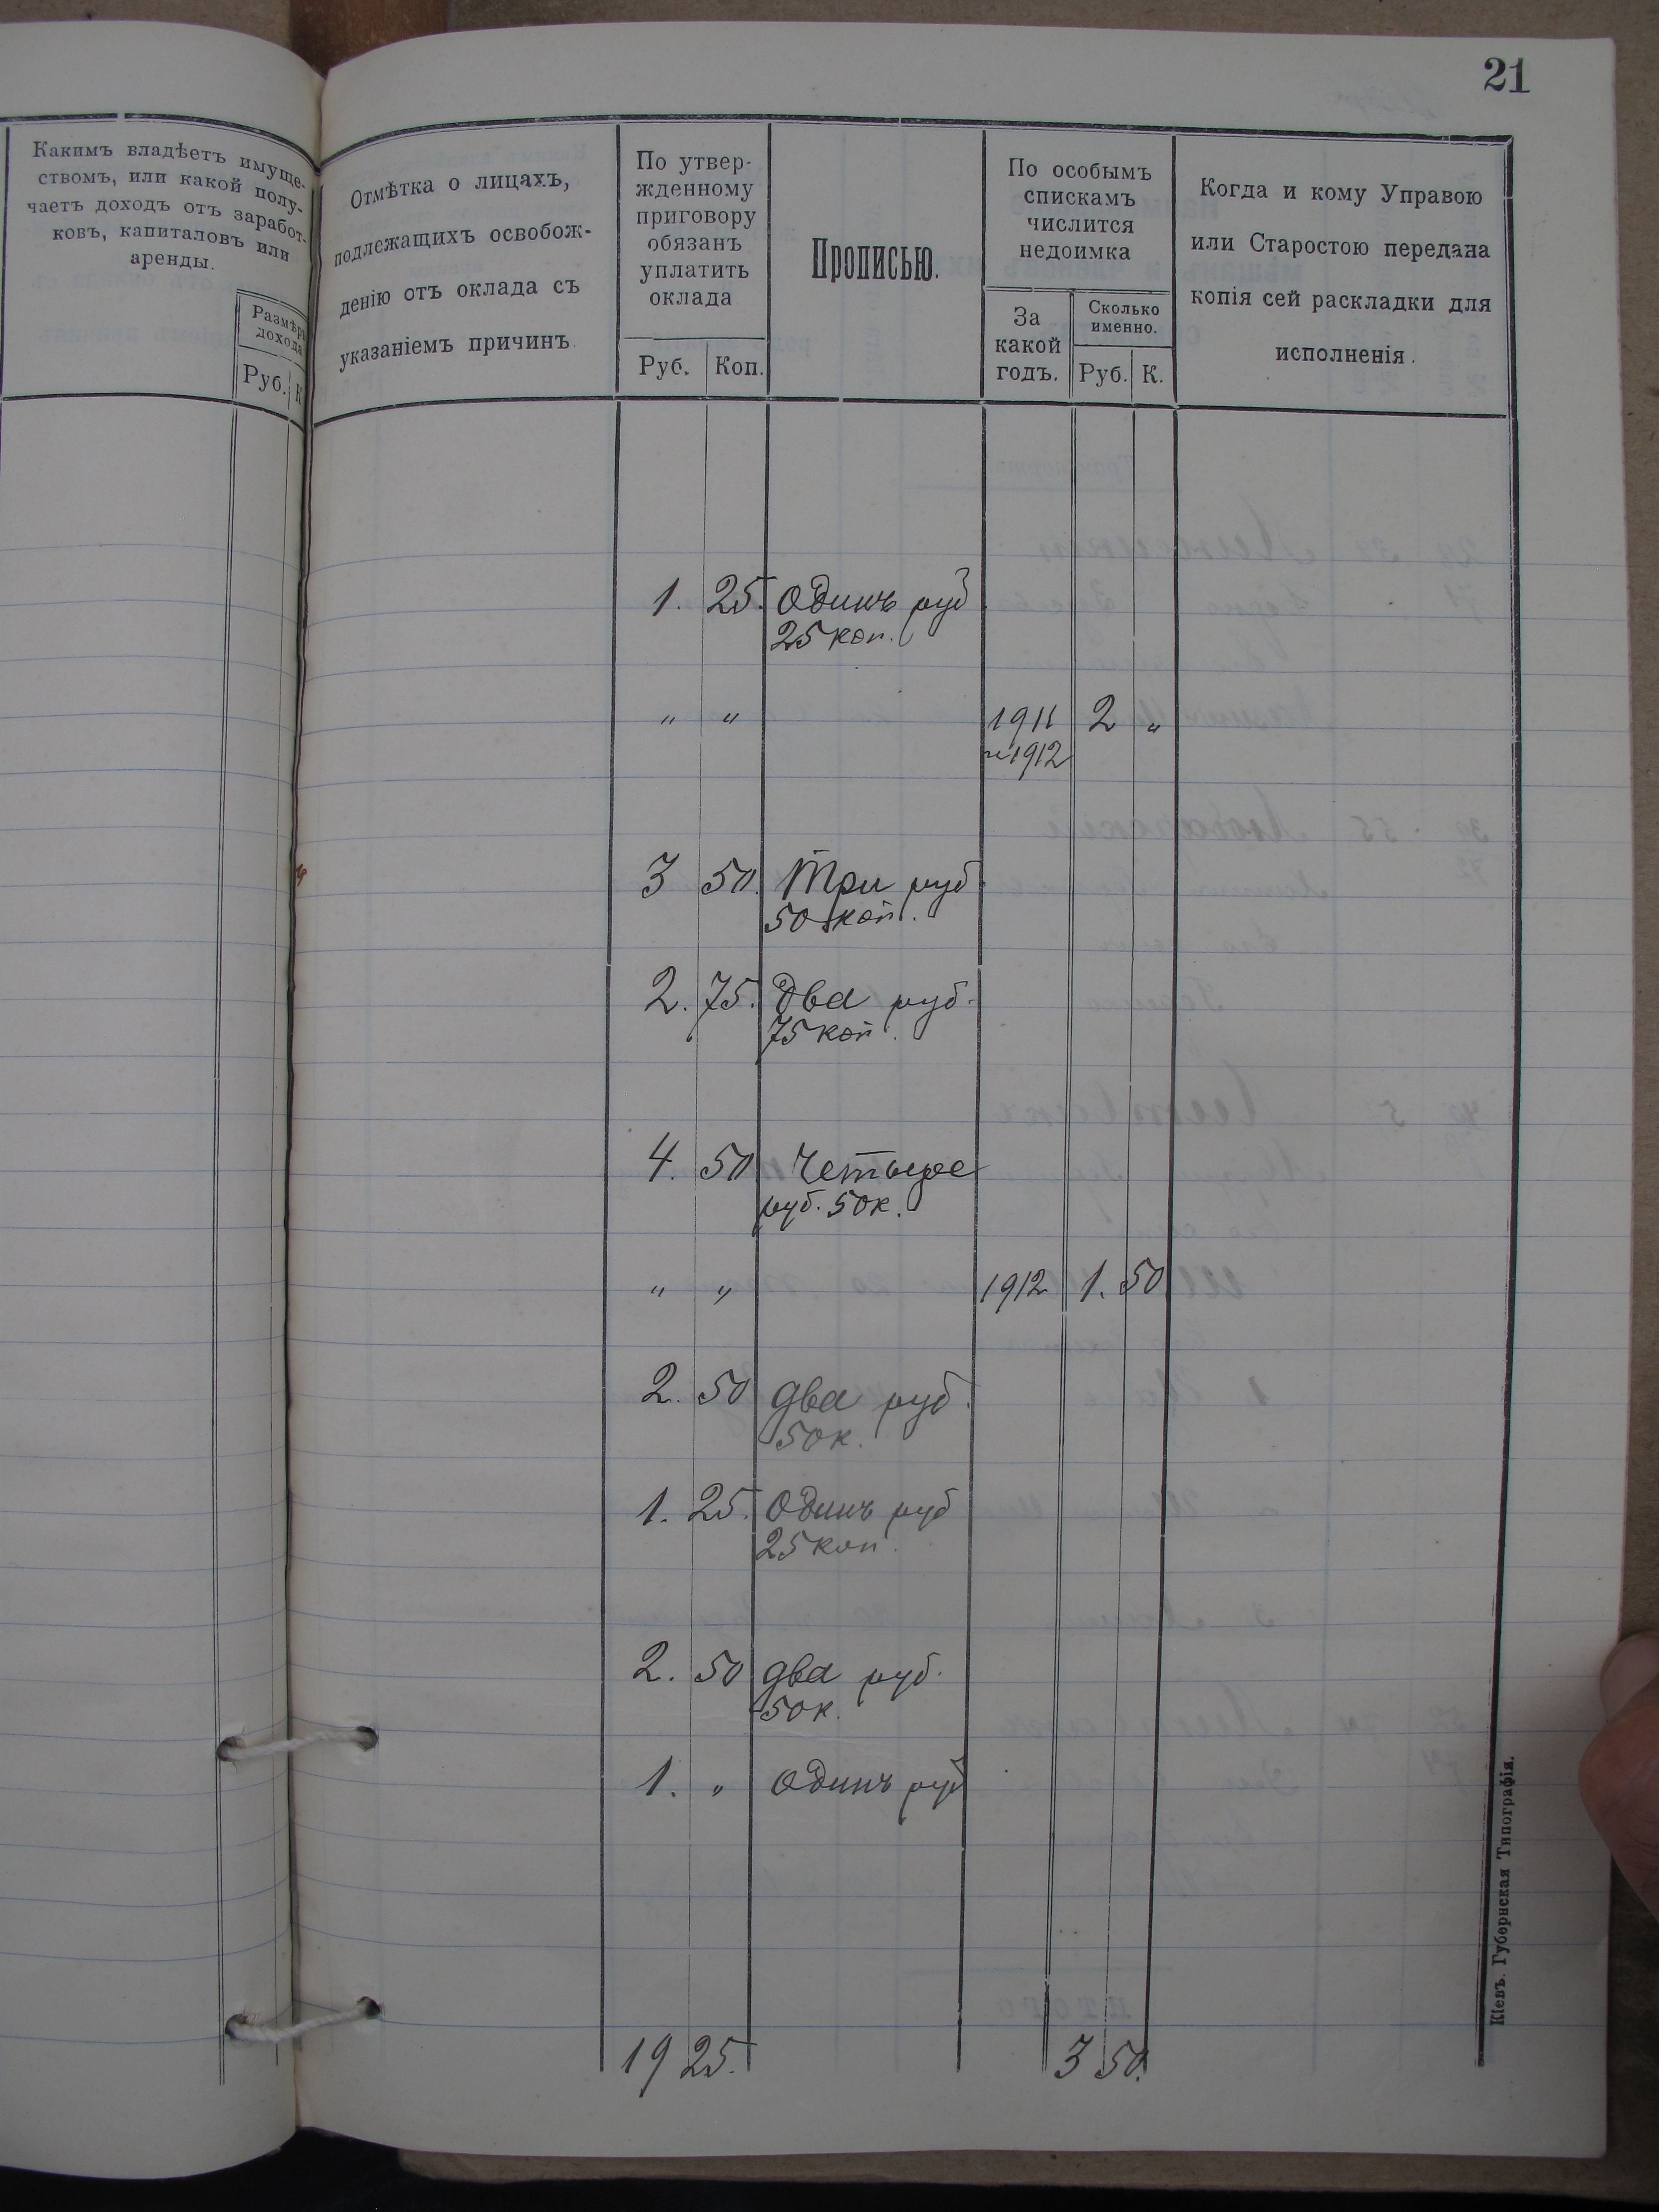 21
Какимъ владѣетъ имуще-
ствомъ, или какой полу-
чаетъ доходъ отъ заработ-
ковъ, капиталовъ или
аренды.
Размѣръ
дохода
Руб. К
Отмѣтка о лицахъ,
подлежащихъ освобож-
денію отъ оклада съ
указаніемъ причинъ.
По утвер-
жденному
приговору
обязанъ
уплатить
оклада
Руб. Коп.
Прописью.
По особымъ
спискамъ
числится
недоимка
За
какой
годъ.
Сколько
именно.
Руб. К.
Когда и кому Управою
или Старостою передана
копія сей раскладки для
исполненія.
1. 25. Одинъ руб
25 коп.
" " 1911 2 "
и 1912
3 50. Три руб
50 коп.
2. 75. Два руб.
75 коп.
4. 50 Четыре
руб. 50 к.
" " 1912 1. 50
2. 50 два руб.
50 к.
1. 25. Одинъ руб
25 коп.
2. 50 два руб.
50 к.
1. " Одинъ руб
19 25. 3 50.
Кіевъ. Губернская Типографія.